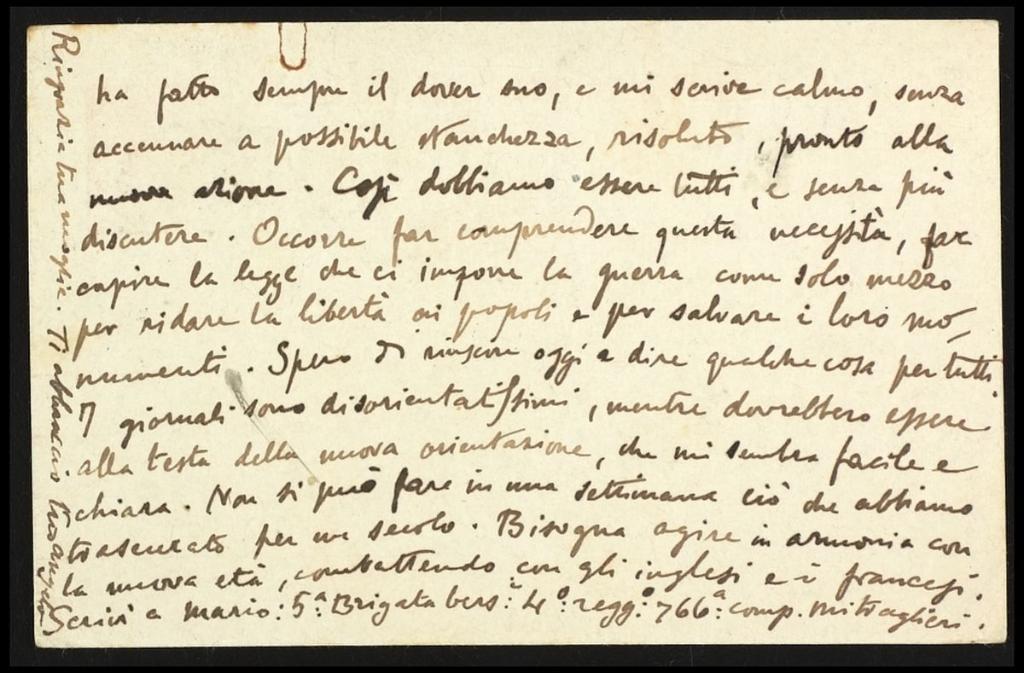 ha fatto sempre il dover suo, e mi scrive calmo, senza
accennare a possibile stanchezza, risoluto, pronto alla
nuova azione. Così dobbiamo essere tutti, e senza più
discutere. Occorre far comprendere questa necessità, far
capire la legge che ci impone la guerra come solo mezzo
per ridare la libertà ai popoli e per salvare i loro mo-
numenti. Spero di riuscire oggi a dire qualche cosa per tutti
I giornali sono disorientatissimi, mentre dovrebbero essere
alla testa della nuova orientazione, che mi sembra facile e
chiara. Non si può fare in una settimana ciò che abbiamo
trascurato per un secolo. Bisogna agire in armonia con
la nuova età, combattendo con gli inglesi e i francesi.
Scrivi a Mario: 5ª Brigata bers: 4º: regg:º 766ª: comp. mitraglieri.
Ringrazia tua moglie. Ti abbraccio tuo Angelo